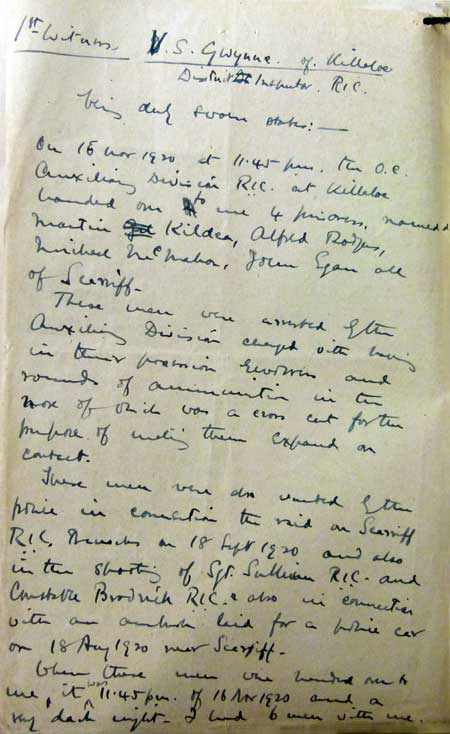 1st Witness. V. S. Gwynne of Killaloe
District Inspector. R.I.C.
being duly sworn states:—
On 16 Nov 1920 at 11.45 pm. the O.C.
Auxiliary Division R.I.C. at Killaloe
handed over to me 4 prisoners, named
Martin Kildea, Alfred Rodgers,
Michael McMahon, John Egan all
of Scarriff.
These men were arrested by the
Auxiliary Division charged with having
in their possession revolvers and
rounds of ammunition in the
nose of which was a cross cut for the
purpose of making them expand on
contact.
These men were also wanted by the
police in connection the raid on Scarriff
RIC. Barracks on 18 Sept 1920 and also
in the shooting of Sgt. Sullivan RIC. and
Constable Brodrick RIC. & also in connection
with an ambush laid for a police car
on 18 Aug 1920 near Scarriff.
When these men were handed over to
me, it was 11.45 pm. of 16 Nov 1920 and a
very dark night. I had 6 men with me.